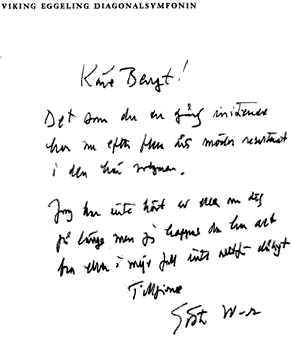 VIKING EGGELING DIAGONALSYMFONIN
Käre Bengt!
Det som du en gång initierade
har nu efter flera års mödor resulterat
i den här volymen.
Jag har inte hört av dig
på länge men jag hoppas du har det
bra eller i varje fall inte alltför dåligt
Tillgivne
Gösta W-r